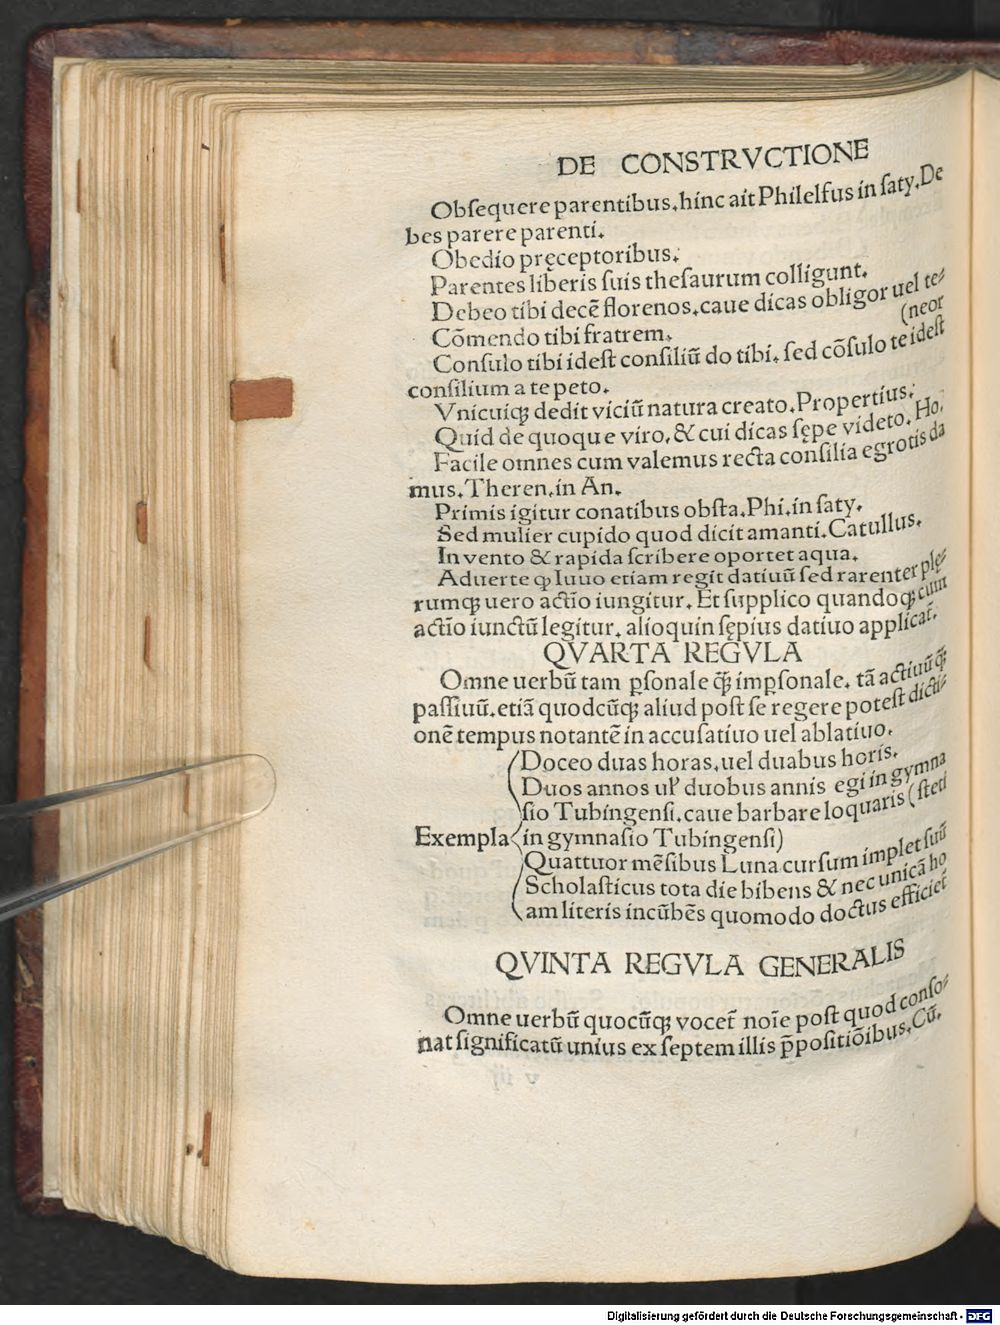 DE CONSTRVCTIONE
Obſequere parentibus.hinc ait Philelfus in ſaty.De
bes parere parenti.
Obedio pręceptoribus.
Parentes liberis ſuis theſaurum colligunt.
Debeo tibi decē florenos.caue dicas obligor uel te⸗
(neor
Cōmendo tibi fratrem.
Conſulo tibi ideſt conſiliū do tibi. ſed cōſulo te ideſt
conſilium a te peto.
Vnicuiqꝫ dedit viciū natura creato.Propertius.
Quid de quoque viro.& cui dicas ſępe videto. Ho.
Facile omnes cum valemus recta conſilia egrotis da
mus.Theren.in An.
Primis igitur conatibus obſta.Phi.in ſaty.
Sed mulier cupido quod dicit amanti.Catullus.
In vento & rapida ſcribere oportet aqua.
Aduerte ꝙ Iuuo etiam regit datiuū ſed rarenter plę⸗
rumqꝫ uero actio iungitur. Et ſupplico quandoqꝫ cum
actio iunctū legitur. alioquin ſępius datiuo applicat̄.
QVARTA REGVLA
Omne uerbū tam ꝑſonale q̄ꝫ imꝑſonale. tā actiuū q̄ꝫ
paſſiuū.etiā quodcūqꝫ aliud poſt ſe regere poteſt dicti⸗
onē tempus notantē in accuſatiuo uel ablatiuo.
Doceo duas horas.uel duabus horis.
Duos annos ul̛ duobus annis egi in gymna
ſio Tubingenſi.caue barbare loquaris (ſteti
Exempla in gymnaſio Tubingenſi)
Quattuor mēſibus Luna curſum implet ſuū
Scholaſticus tota die bibens & nec unicā ho
am literis incūbēs quomodo doctus efficiet̄
QVINTA REGVLA GENERALIS
Omne uerbū quocūqꝫ vocet̄ noīe poſt quod conſo⸗
nat ſignificatū unius ex ſeptem illis p̄poſitiōibus.Cū.
Digitalisierung gefördert durch die Deutsche Forschungsgemeinschaft - DFG